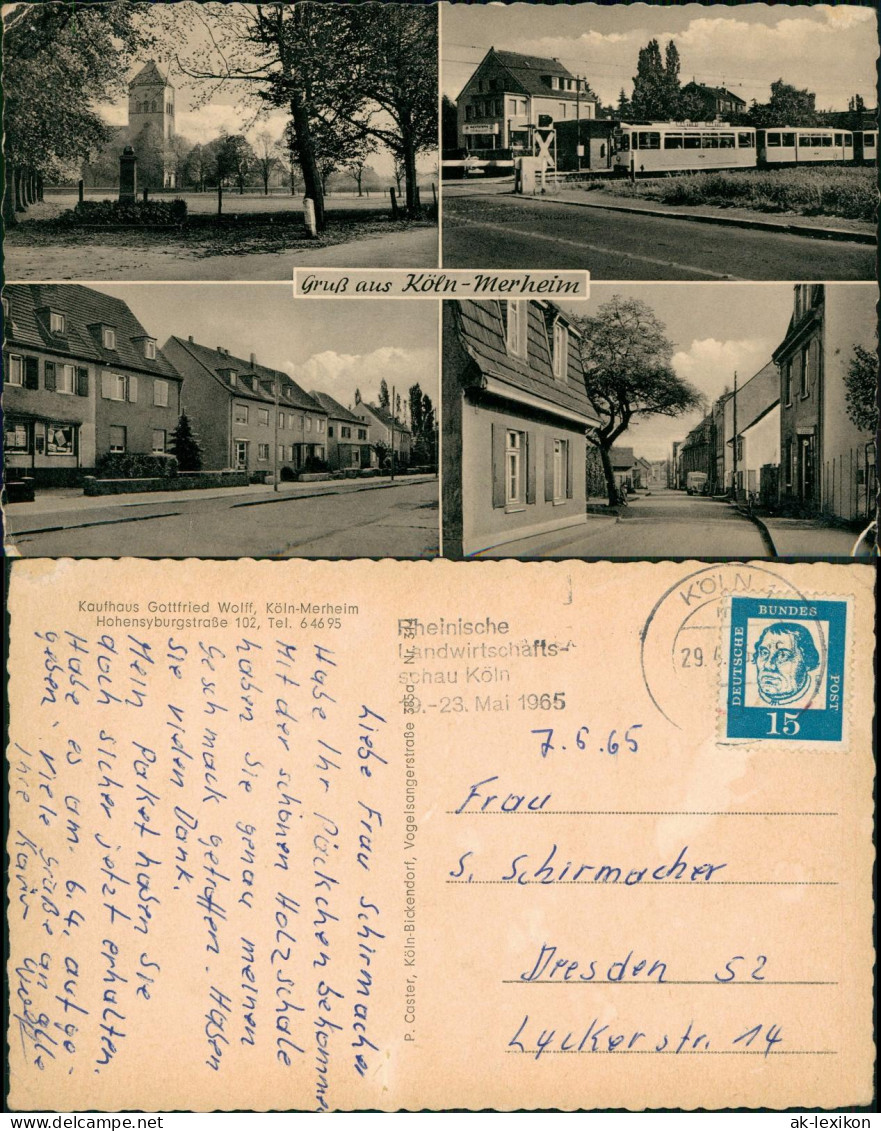 Gruß aus Köln-Merheim
Kaufhaus Gottfried Wolff, Köln-Merheim
Hohensyburgstraße 102, Tel. 6 46 95
Rheinische
Landwirtschafts-
schau Köln
-23. Mai 1965
KÖLN
29.4.
DEUTSCHE
BUNDES
POST
15
7.6.65
Liebe Frau Schirmacher
Habe Ihr Päckchen bekommen
Mit der schönen Holzschale
haben Sie genau meinen
Geschmack getoffen. Haben
Sie vielen Dank.
Mein Paket haben Sie
doch sicher jetzt erhalten.
Habe es am 6.4. aufge-
geben. Viele Grüße an alle
Ihre Karin
P. Caster, Köln-Bickendorf, Vogelsangerstraße 385a
Frau
S. Schirmacher
Dresden 52
Lyckerstr. 14
ak-lexikon